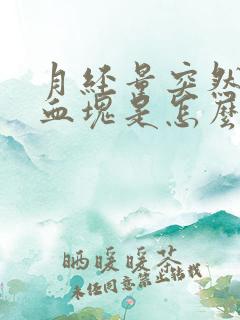 月经量突然
血块是怎么
晒暖暖茶
未经同意禁止转载